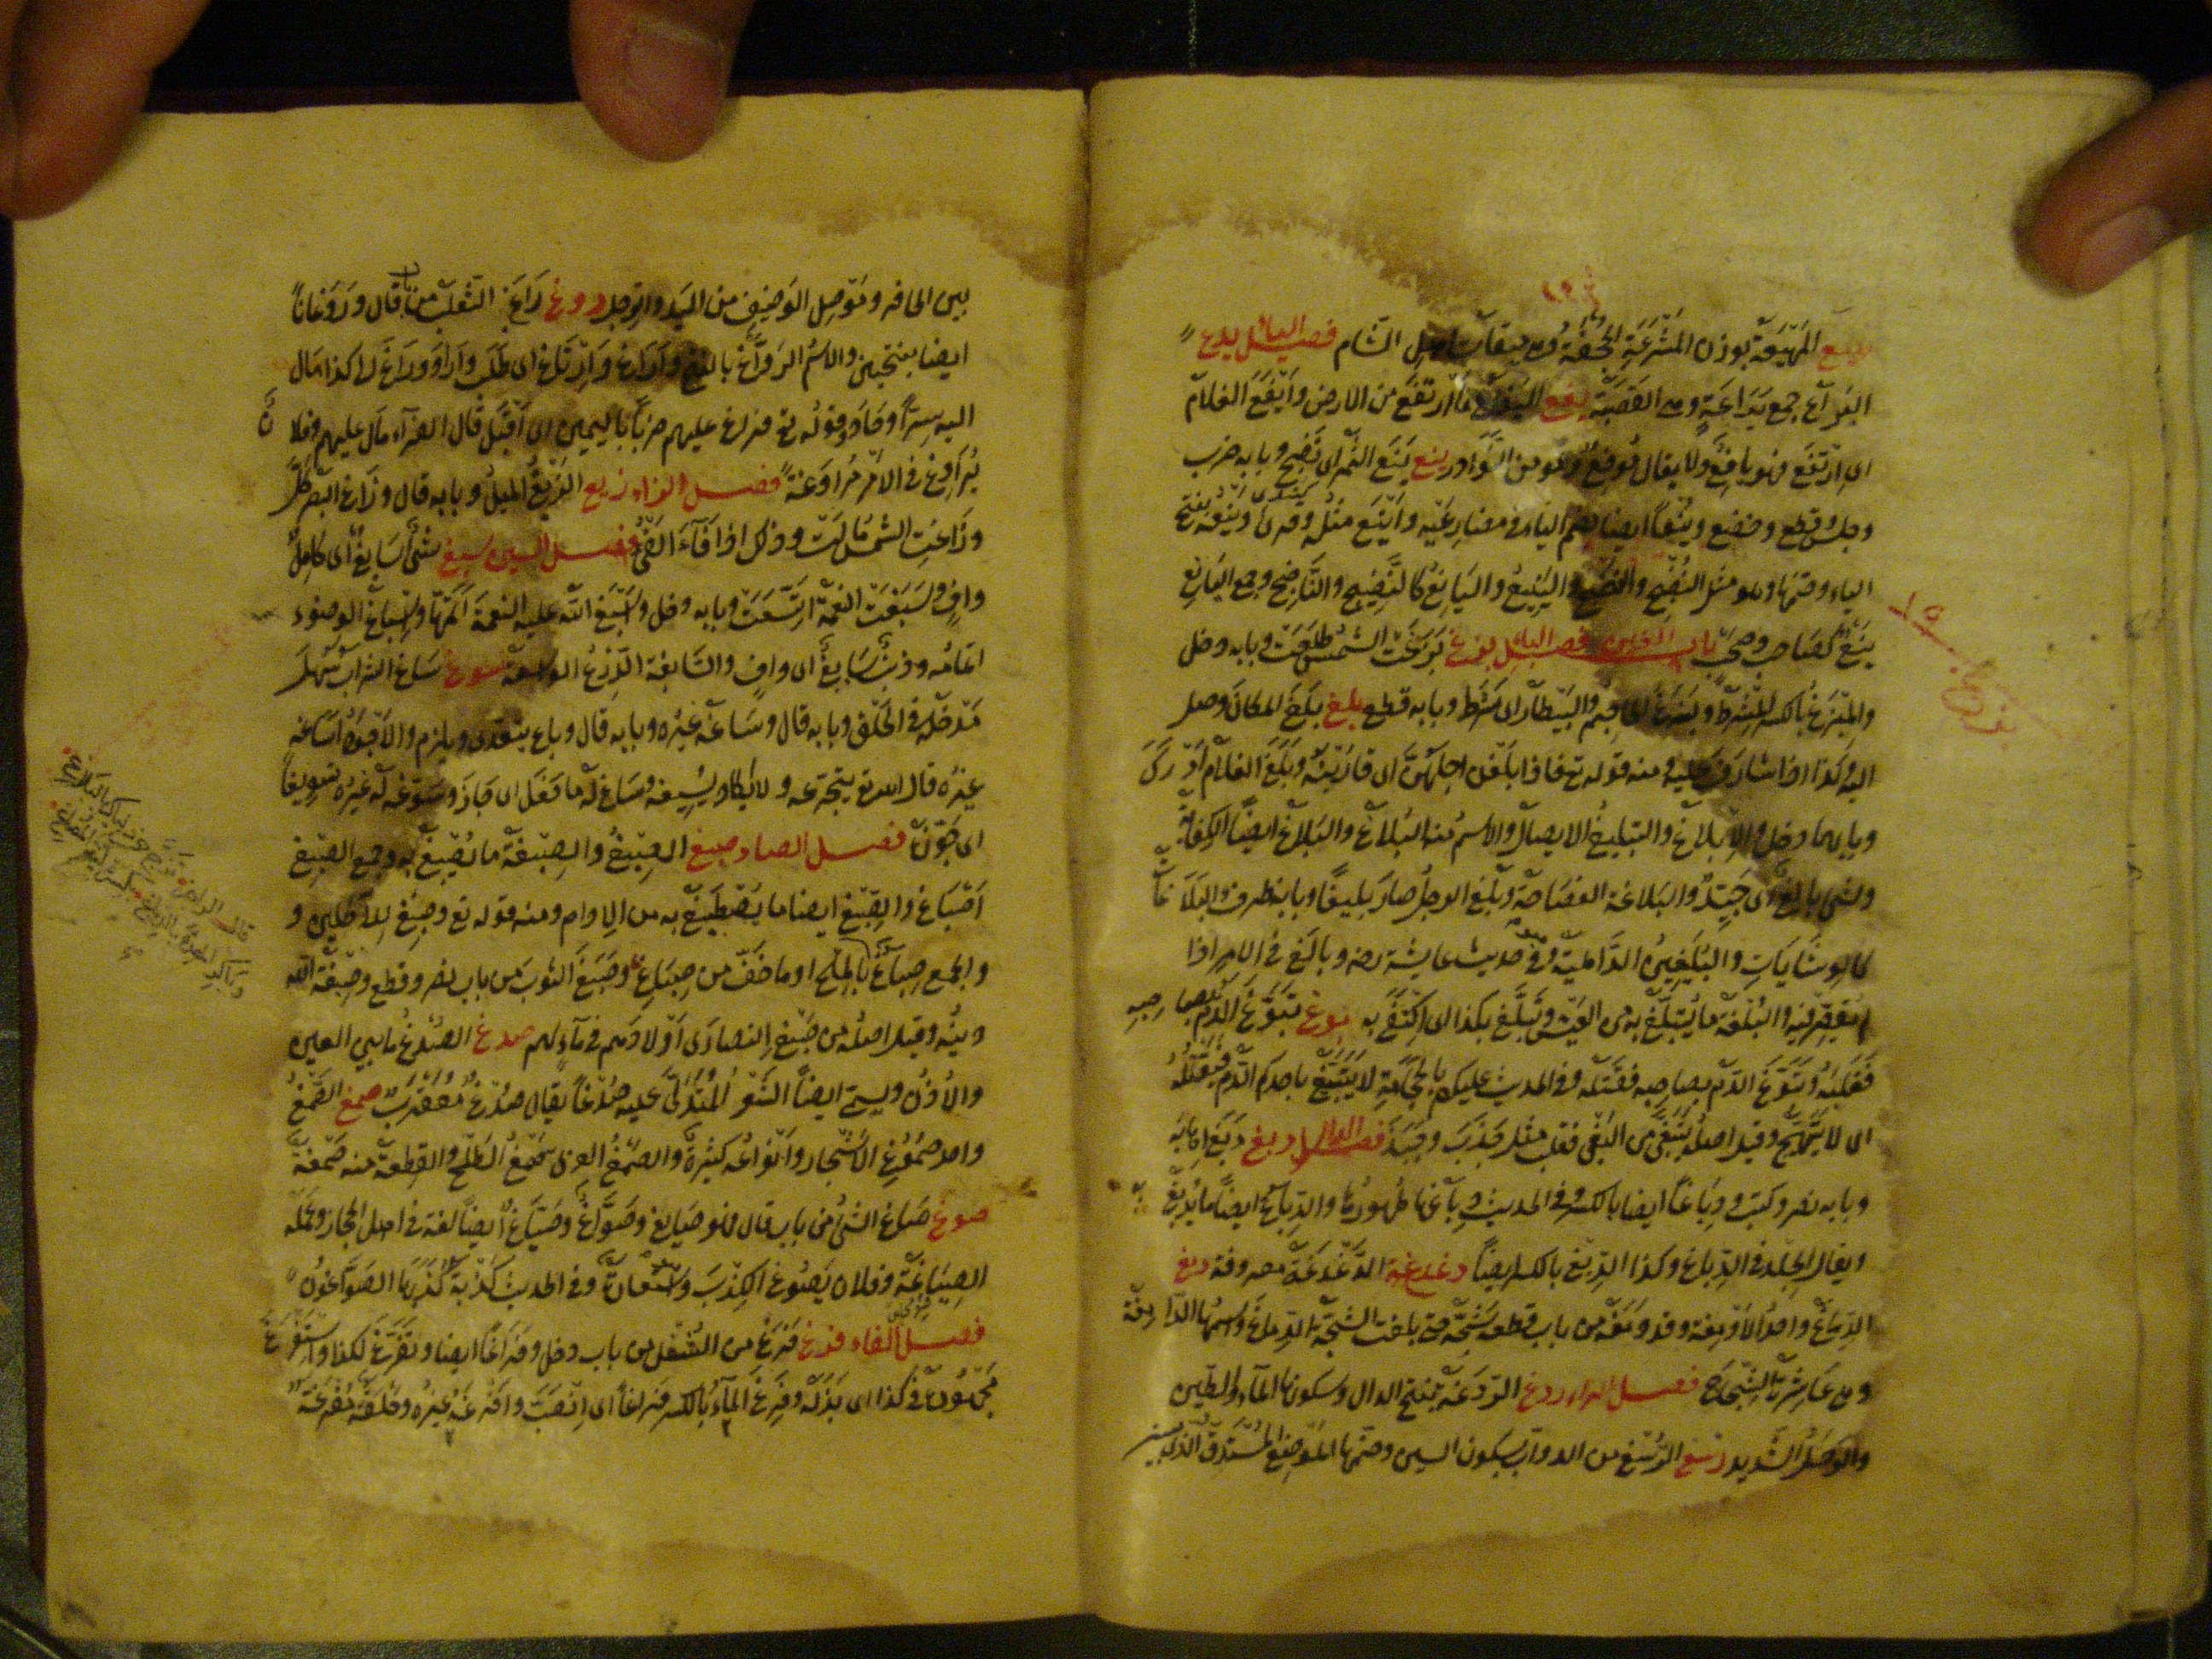 المَهْيَعَة بوزن المَشْرَعَةِ الجُحْفَةُ وهي ميقات اهل الشام فصل الياء يرع
اليَرَاعُ جمع يَرَاعَةٍ وهي القَصَبَةُ يفع اليَفَاعُ ما ارتفع من الارض وأيْفَعَ الغلامُ
اى ارْتَفَعَ فهو يافِعٌ ولا يقال مُوفِعٌ وهو من النَّوَادر ينع يَنَعَ الثَّمَر اى نَضِجَ وبابه ضرب
وجلس وقطع وخضع ويُنْعاً ايضا بضم الياء وأيْنَعَ مثله وقرئ ويَنْعِه بفتح
الياء وضمّها وهو مثل النُّضْجِ والنَّضْجِ واليَنِيعُ واليَانِعُ كالنَّضِيجِ والنَّاضِجِ وجمع اليَانِعِ
يَنْعٌ كصَاحِبٍ وصَحْبٍ باب الغين فصل الباء بزغ بَزَغَتِ الشَّمْسُ طَلَعَتْ وبابه دخل
والمِبْزَغُ بالكسر المِشْرَطُ وبَزَغَ الحاجِمُ والبَيْطَارُ اى شَرَطَ وبابه قطع بلغ بَلَغَ المكانَ وصل
اليه وكذا اذا شارف عليه ومنه قوله تع فاذا بَلَغْنَ اجلهُنَّ اى قارَبْنَهُ وبَلَغَ الغلامُ أدْرَكَ
وبابهما دخل والإبْلَاغ والتبليغُ الايصال والاسم منه البَلَاغُ والبَلَاغُ ايضاً الكِفَايَة
وشئ بالِغٌ اى جَيِّدٌ والبَلاغة الفصَاحةُ وبَلُغَ الرجلُ صارَ بليغًا وبابه ظرف والبَلَاغَات
كالوِشَايَاتِ والبُلَغِينُ الدَّاهيَةُ وفى حديث عايشة رضه وبالَغَ فى الامر اذا
لم يُقَصِّر فيه والبُلْغَةُ ما يُتَبَلَّغُ به من العَيْش وتَبَلَّغَ بكذا اى اكْتَفَى به بوغ تَبَوَّغَ الدَّمُ بصاحِبِهِ
فغَلَبَهُ وتَبَوَّغَ الدَّمُ بصاحِبِه فقَتَلَهُ وفى الحديث عليكم بالحِجَامَةِ لا يَتَبَيَّغْ باحدكم الدَّمُ فَيَقْتُلَهُ
اى لا يَتَهَيَّجُ وقيل اصلُه يَتَبَغَّى من البَغْى فقلب مثل جَذَبَ وجَبَذَ فصل الدال دبغ دَبَغَ اهابَهُ
وبابه نصر وكتب ودِبَاغًا ايضا بالكسر وفى الحديث دِبَاغُهَا طَهُورُهَا والدِّبَاغُ ايضاً ما يُدْبَغُ
ويقال الجِلْد فى الدِّباغِ وكذا الدِّبْغ بالكسر ايضاً دغدغة الدَّغْدَغَةُ معروفة دمغ
الدِّمَاغُ واحد الأدْمِغَة وقد دَمَغَهُ من باب قطع شَجَّهُ حتى بلغت الشَّجَّةُ الدِّماغَ واسمها الدَّامِغَة
وهى عَاشِرَةُ الشِّجَاجِ فصل الراء ردغ الرَّدَغَةُ بفتح الدال وسكونها الماء والطين
والوَحَلُ الشَّديد رسغ الرُّسْغُ من الدوابّ بسكون السين وضمّها المَوْضِعُ المُسْتَدِقُّ الذى
بين الحافر ومَوْصِل الوَظِيفِ من اليَدِ والرِّجل روغ رَاغَ الثَّعلَبُ من باب قال ورَوَغَاناً
ايضا بفتحتين والاسم الرَّوَاغُ بالفتح وأرَاغَ وارْتَاغَ اى طَلَبَ وأرَادَ ورَاغَ الى كذا مَال
اليه سِرّاً وحَادَ وقوله تع فراغ عليهم ضرباً باليمين اى أقْبَلَ قال الفرّاء مَالَ عليهم وفلانٌ
يُرَاوِغُ فى الأمْر مُرَاوَغَةً فصل الزاء زيغ الزَّيْغُ المَيْلُ وبابه قال وزَاغَ البَصَر كَلَّ
وزَاغَتِ الشمسُ مَالَتْ وذلك اذا فَاءَ الفَئُ فصل السين سبغ شئٌ سَابِغٌ اى كامِلٌ
وافٍ وسَبَغَتِ النعمةُ اتَّسَعَتْ وبابه دخل وأسْبَغَ الله عليه النعمةَ أتَمَّهَا وإسْبَاغُ الوضوء
اتمامُه وذنَبٌ سَابِغٌ اى وافٍ والسَّابغة الدِّرْعُ الواسِعَةُ سوغ سَاغَ الشرابُ سَهُلَ
مَدْخَلُه فى الحَلْقِ وبابه قال وسَاغَهُ غيرُه وبابه قال وباع يتعدى ويلزم والأجْوَدُ أسَاغَهُ
غيره قال الله تع يتجرّعه ولا يكاد يُسِيغُه وسَاغَ له ما فَعَل اى جَازَ وسَوَّغَهُ له غيرُه تسويغًا
اى جَوَّزَهُ فصل الصاد صبغ الصِّبْغُ والصِّبْغَةُ ما يُصْبَغُ به وجمع الصِّبْغ
أصْبَاغٌ والصِّبْغ ايضا ما يُصْطَبَغُ به من الادام ومنه قوله تع وصِبْغٍ للآكلين و
والجمع صِبَاغٌ وصَبَغَ الثوبَ من باب نصر وقطع وصِبْغَةُ الله
دينُه وقيل اصلُه من صَبْغِ النصارَى أوْلَادَهم فى ماءٍ لهم صدغ الصُّدْغُ ما بين العين
والأذُن ويسمّى ايضاً الشَّعَرُ المُتَدَلِّى عليه صُدْغاً يقال صُدْغٌ مُعَقْرَبٌ صمغ الصَّمْغُ
واحد صُمُوغِ الأشْجار وأنْوَاعُه كثيرةٌ والصَّمْغُ العربى صَمْغُ الطَّلْحِ والقِطعة منه صَمْغَةٌ
صوغ صَاغَ الشئَ من باب قال فهو صَايِغٌ وصَوَّاغٌ وصَيَّاغٌ ايضاً لغة فى اهل الحجاز وعَمَلُه
الصِيَاغَةُ وفلان يَصُوغُ الكِذْبَ وفى الحديث كَذْبَةٌ كَذَبَهَا الصَّوَّاغُونَ
فصل الفاء فرغ فَرَغَ من الشُّغْل من باب دخل وفَرَاغًا ايضا وتَفَرَّغَ لكذا واسْتَفْرَغَ
مَجْهُودَهُ فى كذا اى بَذَلَه وفَرِغَ الماءُ بالكسر فَرَاغاً اى انْصَبَّ وأفْرَغَهُ غيرُه وحَلْقَةٌ مُفْرَغَةٌ